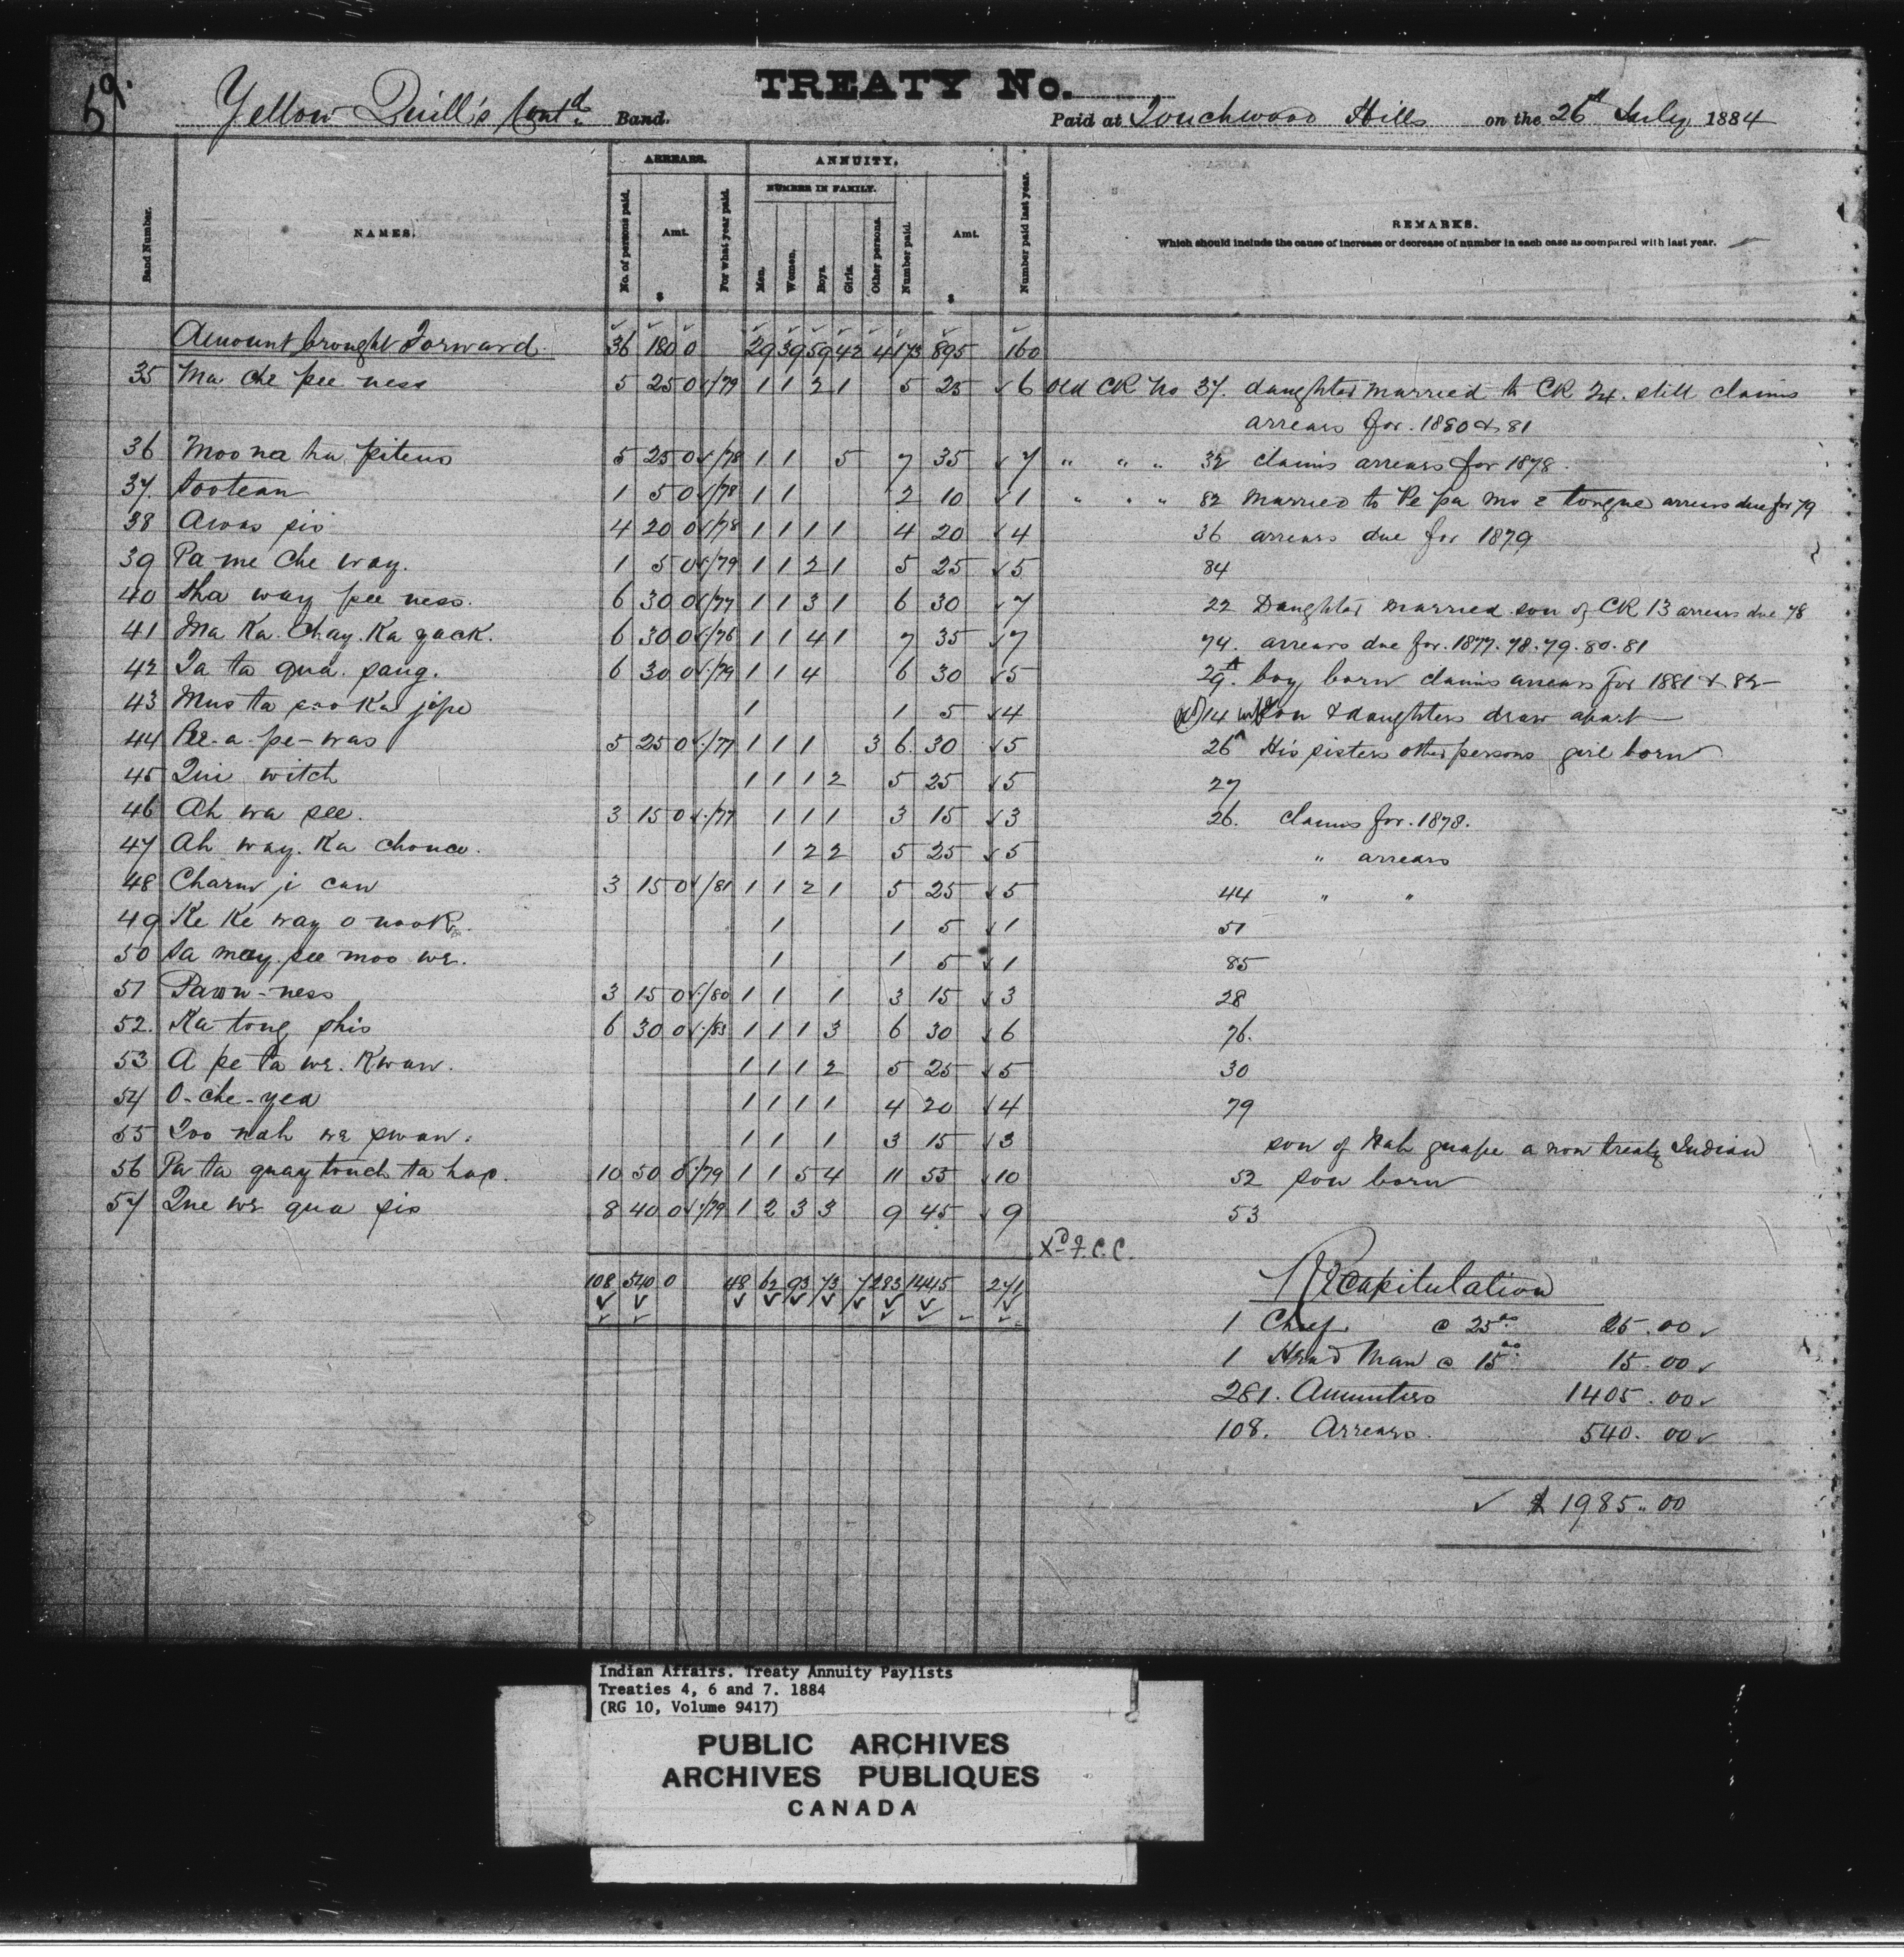 59.
TREATY No.
Yellow Quill's Contd. Band. Paid at Touchwood Hills on the 26th July 1884
ARREARS. ANNUITY.
NUMBER IN FAMILY.
Band Number. NAMES. No. of persons paid. Amt. $ For what year paid. Men. Women. Boys. Girls. Other persons. Number paid. Amt. $ Number paid last year. REMARKS.
Which should include the cause of increase or decrease of number in each case as compared with last year.
Amount brought Forward 36 180 0 29 39 59 42 4 173 895 160
35 Ma che pee ness 5 25 0 /79 1 1 2 1 5 25 6 Old CK No 37. daughter married to CK 24. still claims
arrears for. 1880 & 81
36 Moo na ha piteus 5 25 0 /78 1 1 5 7 35 7 " " " 32 claims arrears for 1878.
37. Sootean 1 5 0 /78 1 1 2 10 1 " " " 82 Married to Pe pa mo e tongue arrears due for 79
38 Awas sis 4 20 0 /78 1 1 1 1 4 20 4 36 arrears due for 1879
39 Pa me che way. 1 5 0 /79 1 1 2 1 5 25 5 84
40 Sha way pee ness. 6 30 0 /77 1 1 3 1 6 30 7 22 Daughter married son of CK 13 arrears due 78
41 Ma Ka. Chay. Ka gack. 6 30 0 /76 1 1 4 1 7 35 7 74. arrears due for. 1877. 78. 79. 80. 81
42 Ta ta qua. sang. 6 30 0 /79 1 1 4 6 30 5 29A. boy born claims arrears for 1881 & 82
43 Mus ta soo Ka jope 1 1 5 4 14 wife son & daughters draw apart
44 Pee-a-pe-was 5 25 0 /77 1 1 1 3 6. 30 5 26A His sisters other persons girl born
45 Qui witch 1 1 1 2 5 25 5 27
46 Ah wa see. 3 15 0 /77 1 1 1 3 15 3 26. Claims for. 1878.
47 Ah way. Ka chouce. 1 2 2 5 25 5 " arrears
48 Charm ji can 3 15 0 /81 1 1 2 1 5 25 5 44 " "
49 Ke Ke way o nook. 1 1 5 1 51
50 Sa may. see moo we. 1 1 5 1 85
51 Pawn-ness 3 15 0 /80 1 1 1 3 15 3 28
52. Ka tong shis 6 30 0 /83 1 1 1 3 6 30 6 76.
53 A pe ta we. Kwan. 1 1 1 2 5 25 5 30
54 O-che-yea 1 1 1 1 4 20 4 79
55 Too nah we swan. 1 1 1 3 15 3 son of Nah guape a non treaty Indian
56 Pa ta quay touch ta hap. 10 50 0 /79 1 1 5 4 11 55 10 52 son born
57 Que we qua sis 8 40 0 /79 1 2 3 3 9 45 9 53
Xd F.C.C.
108 540 0 48 62 93 73 7 283 1445 271
Recapitulation
1 Chief @ 25.00 25.00
1 Head Man @ 15.00 15.00
281. Annuities 1405.00
108. Arrears. 540.00
$ 1985.00
Indian Affairs. Treaty Annuity Paylists
Treaties 4, 6 and 7. 1884
(RG 10, Volume 9417)
PUBLIC ARCHIVES
ARCHIVES PUBLIQUES
CANADA